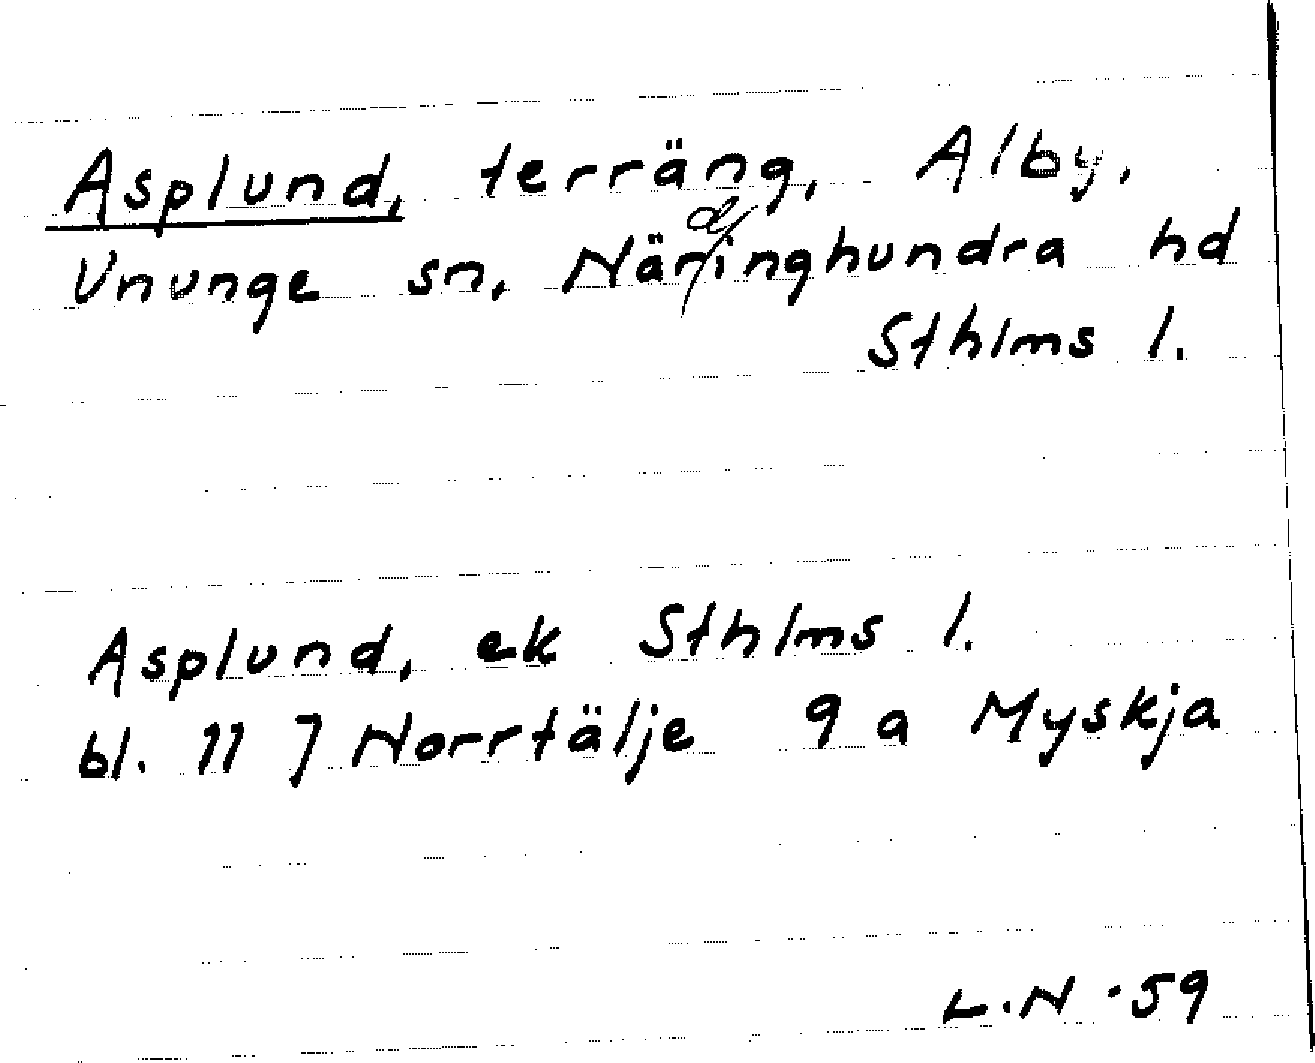 Asplund, terräng, Alby,
Ununge sn, Närdinghundra hd
Sthlms l.
Asplund, ek Sthlms l.
bl. 11 7 Norrtälje 9 a Myskja
L.N -59